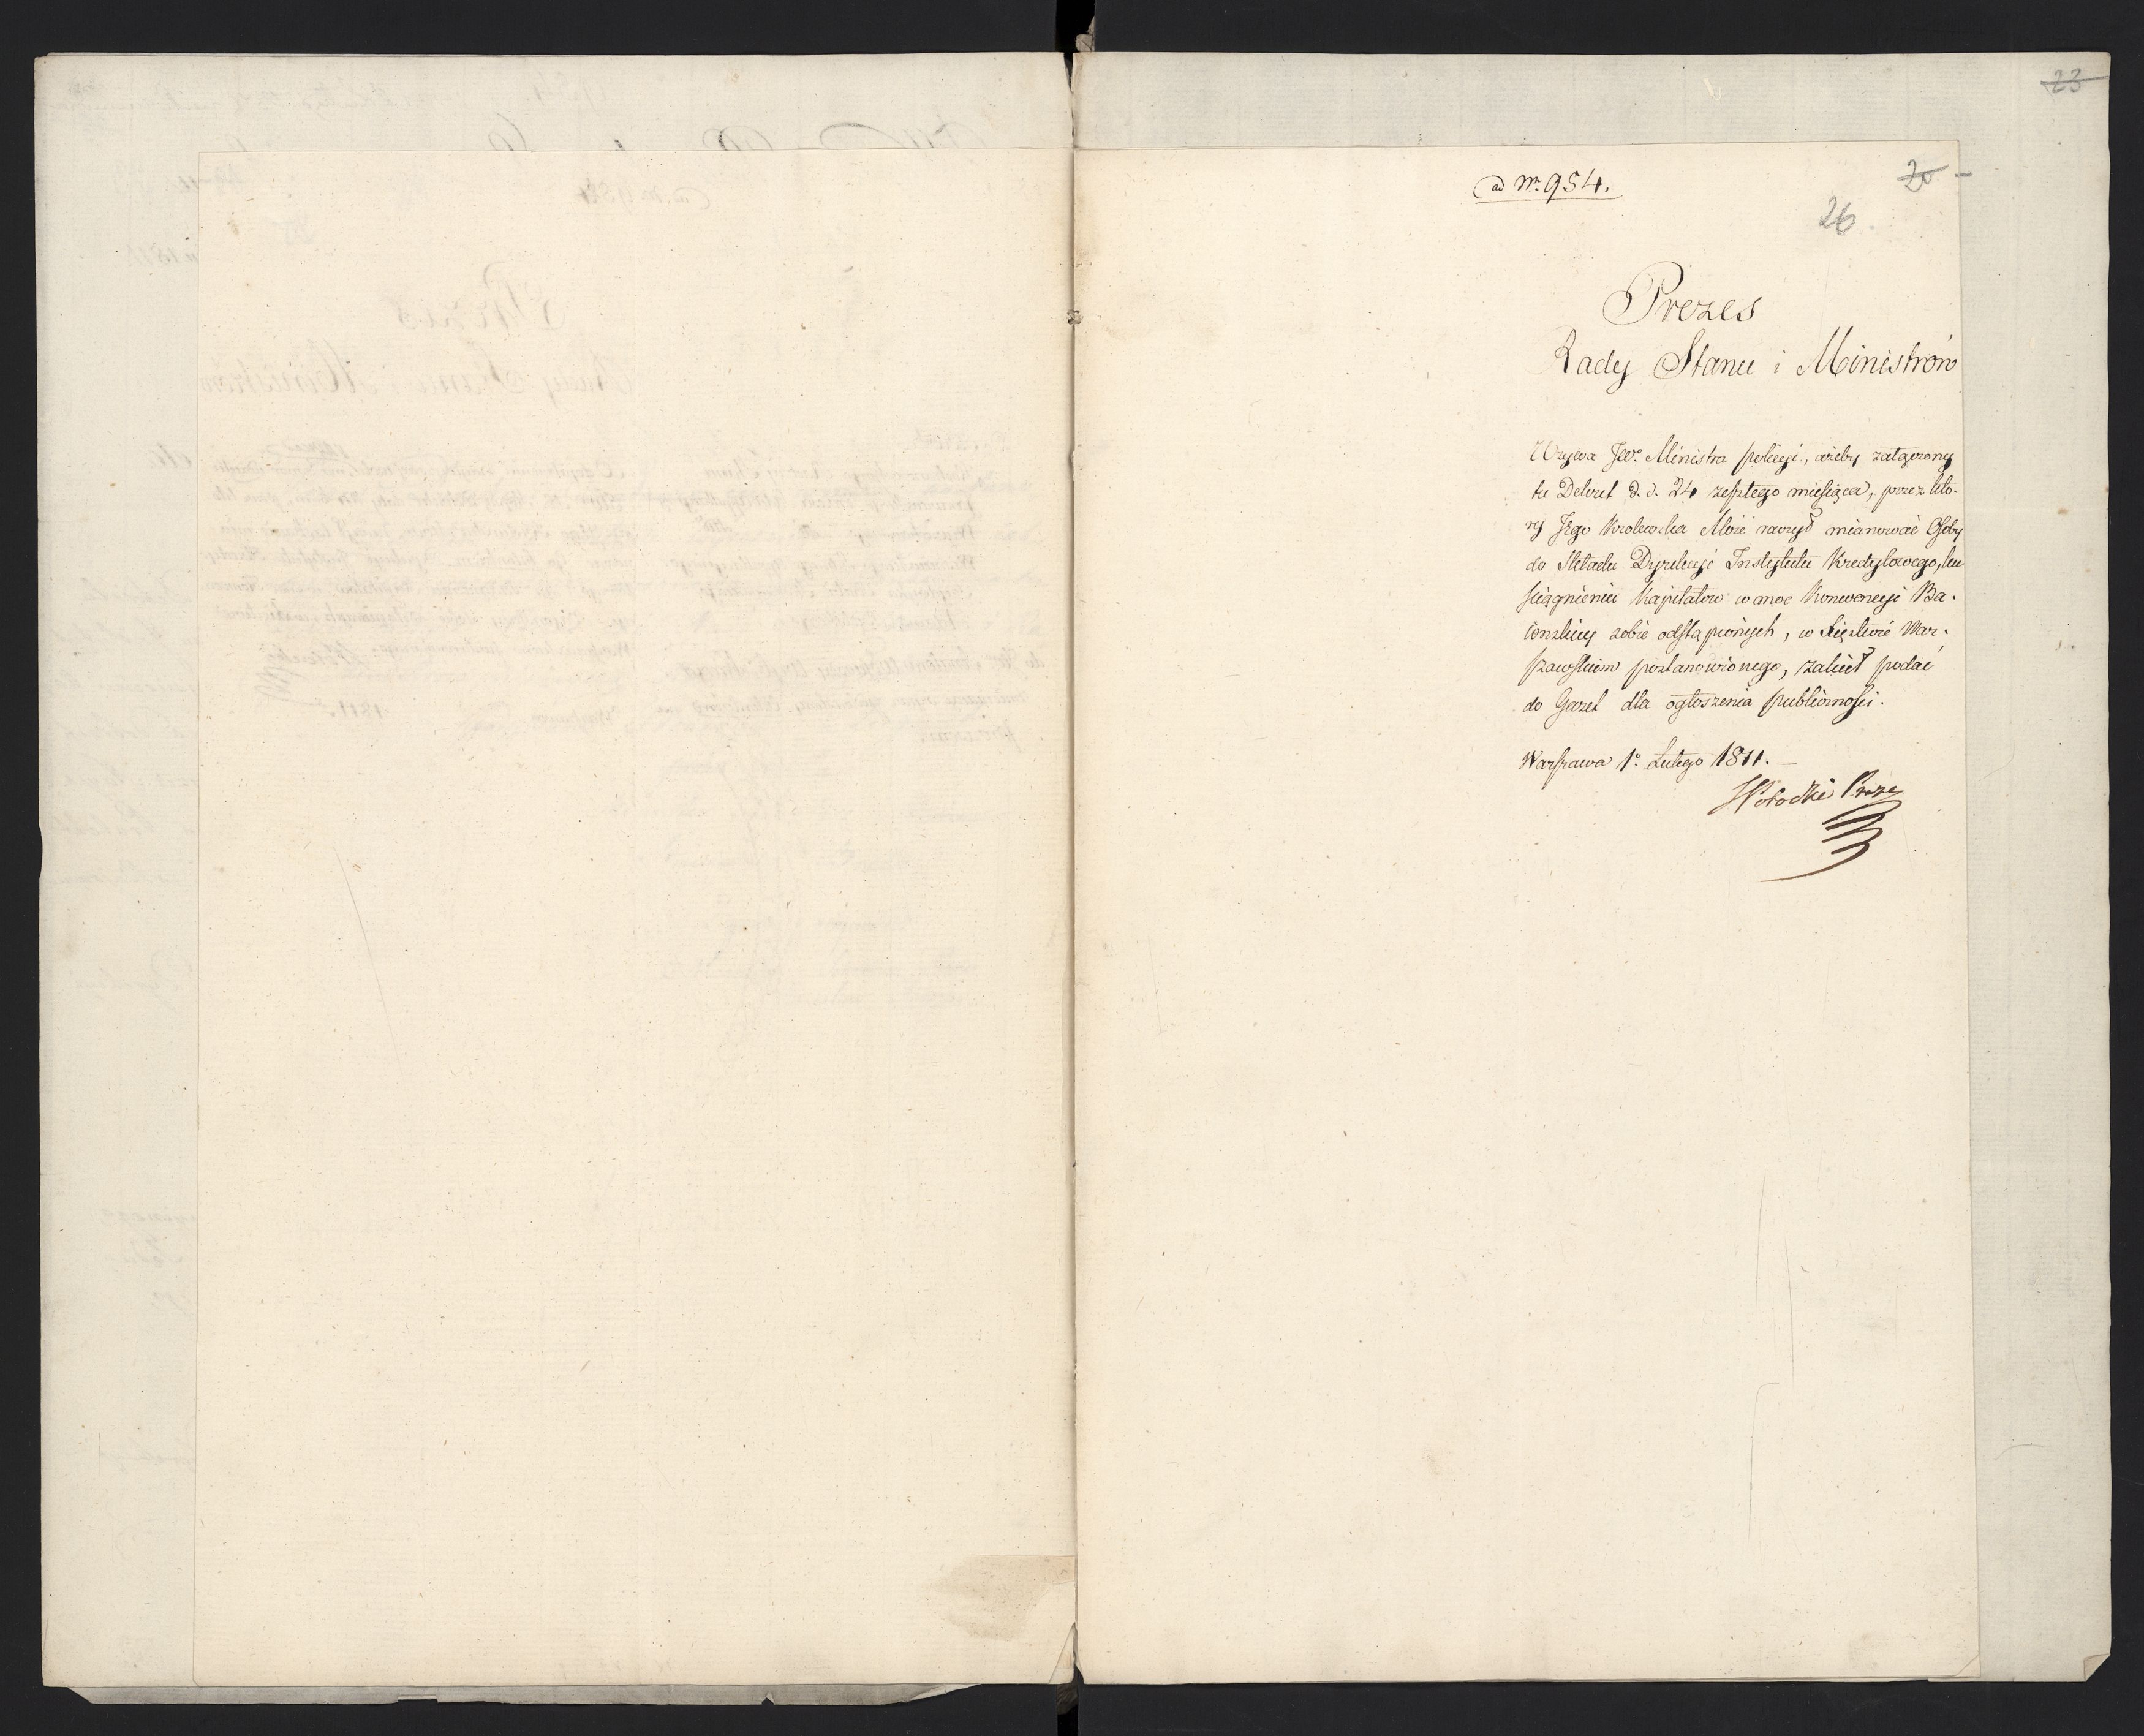 23
ad Nr. 954.
20
26
Prezes
Rady Stanu i Ministrów
Wzywa JW. Ministra policyi, ażeby załączony
tu Dekret d. d. 24 zeszłego miesiąca, przez któ-
ry Jego Królewska Mość raczył mianować Osoby
do Składu Dyrekcyi Instytutu Kredytowego, ku
ściągnieniu Kapitałów w moc Konwencyi Ba-
iońskiey sobie odstąpionych, w Xięstwie War-
szawskiem postanowionego, zalecił podać
do Gazet dla ogłoszenia publiczności.
Warszawa 1o Lutego 1811.